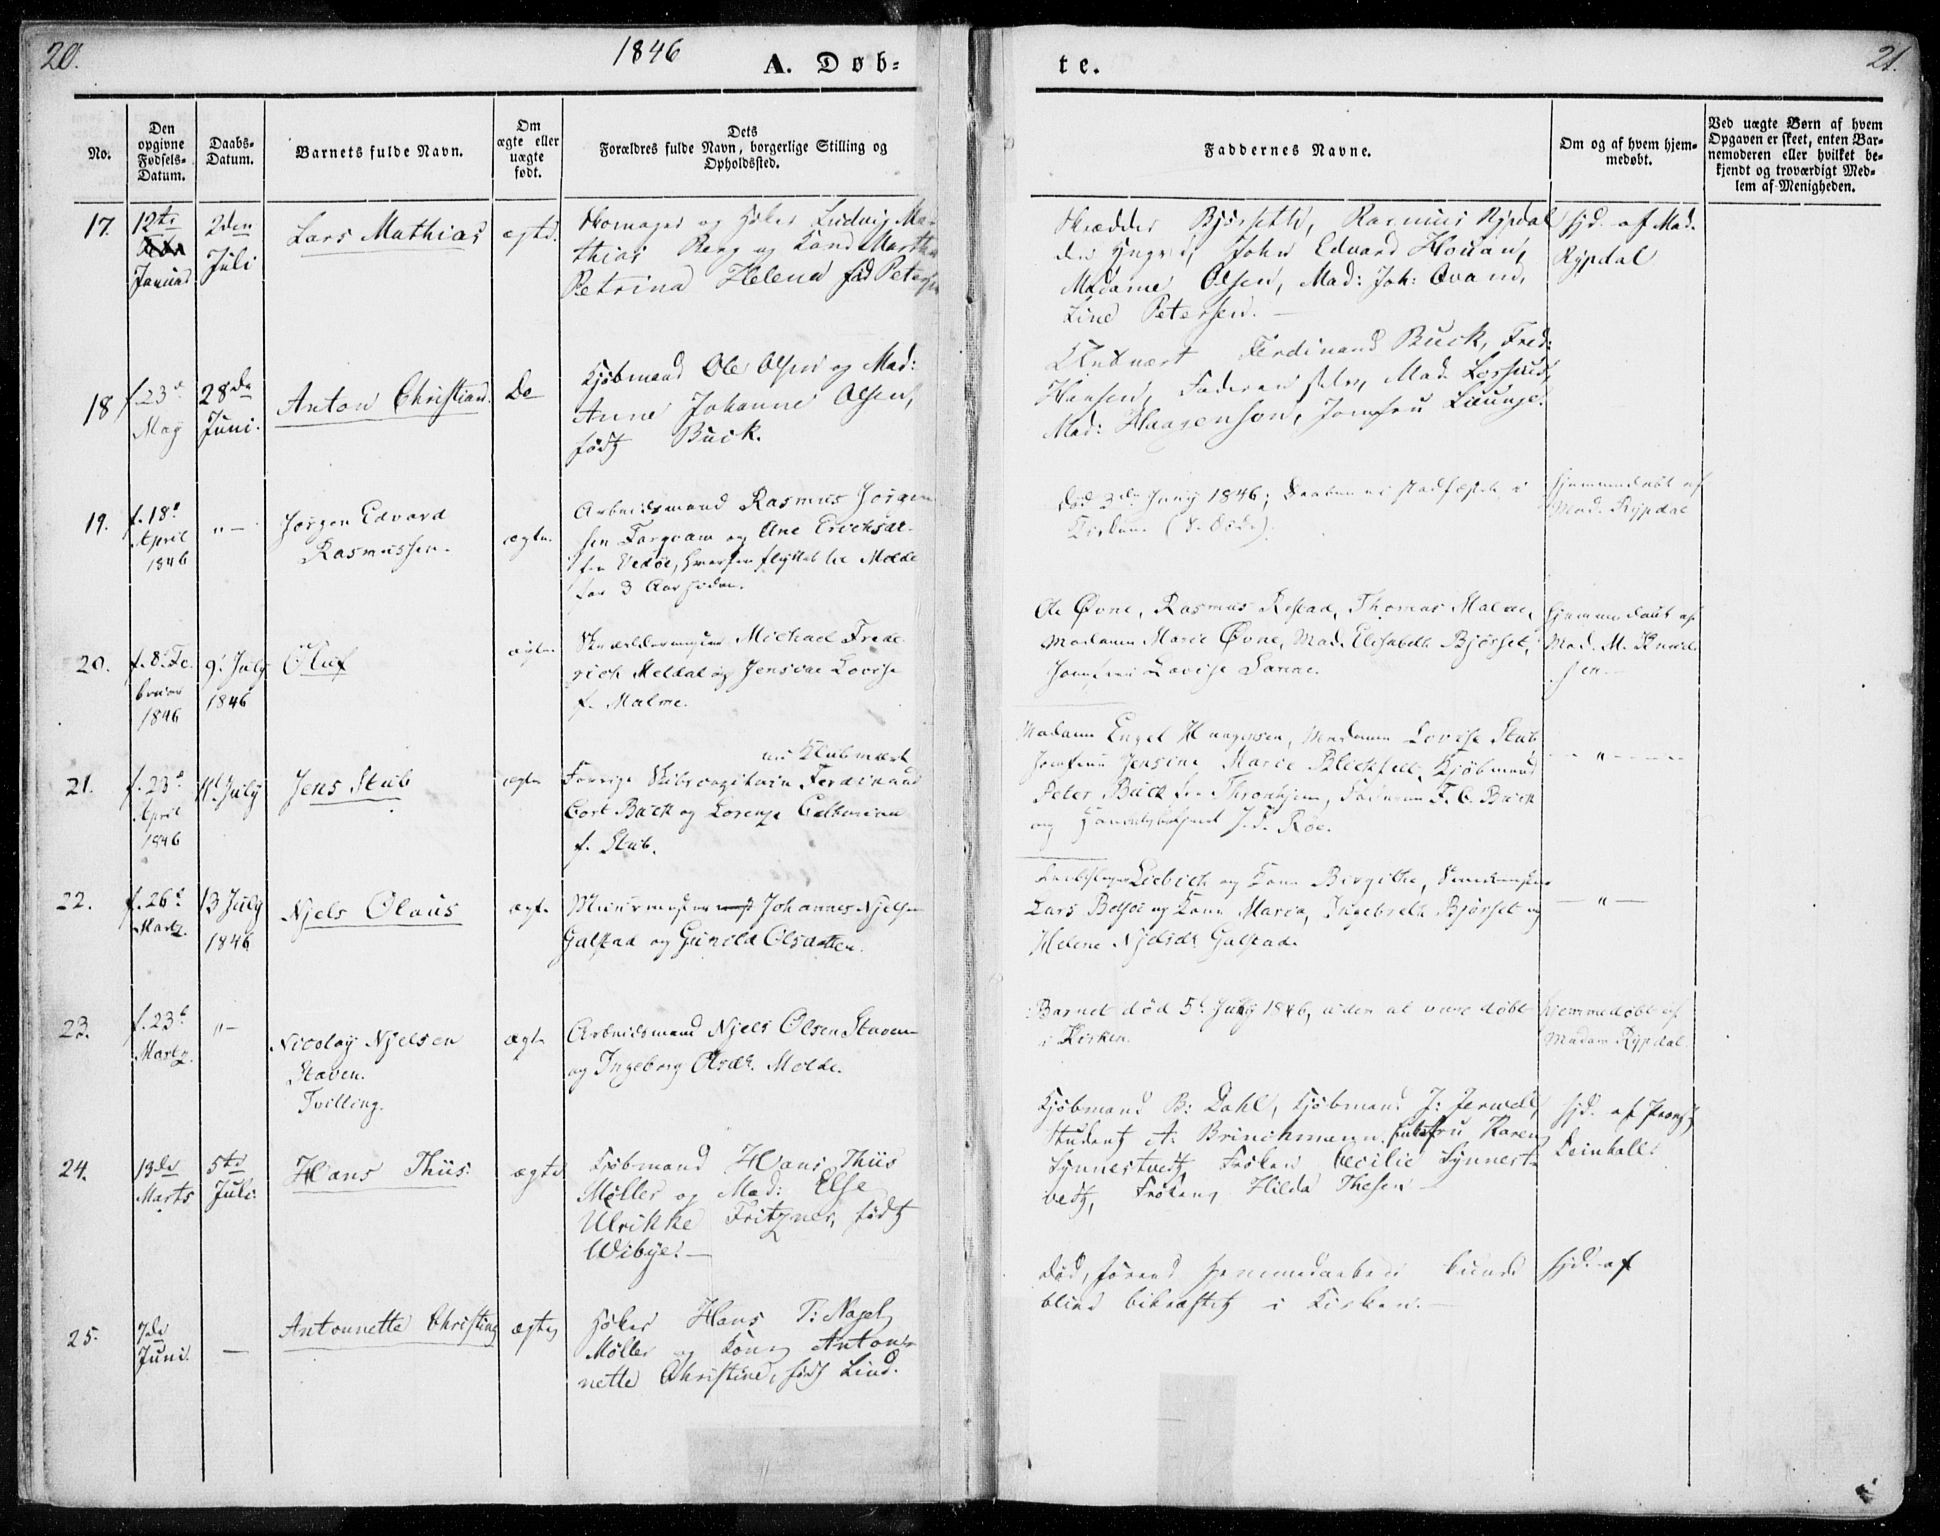 20.
1846
A. Døb-
te.
21.
No.
Den
opgivne
Fødsels-
Datum.
Daabs-
Datum.
Barnets fulde Navn.
Om
ægte eller
uægte
født.
Dets
Forældres fulde Navn, borgerlige Stilling og
Opholdssted.
Faddernes Navne.
Om og af hvem hjem-
medøbt.
Ved uægte Børn af hvem
Opgaven er skeet, enten Bar-
nemoderen eller hvilket be-
kjendt og troværdigt Med-
lem af Menigheden.
17.
12te
Januar
2den
Juli
Lars Mathias
ægte.
Skomager og Høker Ludvig Ma-
thias Berg og Kone Marthe
Petrina Helena fød Petersen
Skrædder Bjørseth, Rasmus Rypdal
John Edvard Houan,
Madame Olsen, Mad: Joh:
Line Petersen.
hjd. af Mad.
Rypdal
18
f. 23de
May
28de
Juni.
Anton Christian.
Do
Kjøbmand Ole Olsen og Mad:
Anne Johanne Olsen,
født Buck.
Klubvært Ferdinand Buck, Fred:
Hansen, Faderen selv, Mad.
Mad: Haagenson, Jomfru
19.
f. 18de
April
1846
"—
Jørgen Edvard
Rasmussen.
ægte.
Arbeidsmand Rasmus Jørgen-
sen og Ane Erichsdat-
fra Vedøe, flyttet til Molde
for 3 Aar siden.
Død 3die Juny 1846; Daaben ei stadfæstet i
Kirken
Hjemmedøbt af
Mad. Rypdal
20.
f. 8de Fe-
bruar
1846
9de July
1846
Oluf
ægte.
Skræddermester Michael Frede-
rich Meldal og Jensine Lovise
f. Malme.
Ole Øvne, Rasmus Thomas Malme,
Madame Marie Øvne, Mad. Elisabeth Bjørset,
Jomfru Lovise Sanne.
Hjemmedøbt af
Mad. M. Knud-
sen.
21.
f. 23de
April
1846
11te July
Jens Stub
ægte
nu Klubvært
Forrige Skibscapitain Ferdinand
Cort Buck og Lorenze
f. Stub.
Madame Engel Haagensen, Madame Lovise Stub
Jomfrue Jensine Marie Kjøbmand
Peter Buck fra Throndhjem, Faderen F. C. Buck
og J. P. Røe.
— " —
22.
f. 26de
Martz.
13 July
1846
Njels Olaus
ægte
Muurmester Johannes Njelsen
Galstad og Gunild Olsdatter.
Liebich og Kone Birgithe,
Lars Bolsøe og Kone Maria, Ingebreth Bjørset og
Helene Njelsdr Galstad.
— " —
23.
f. 23de
Martz.
"—
Nicolay Njelsen
Staven.
Tvilling.
ægte
Arbeidsmand Njels Olsen Staven
og Ingeborg Olsdr. Molde.
Barnet død 5te July 1846, uden at være døbt
i Kirken.
Hjemmedøbt af
Madam Rypdal.
24.
13de
Marts
5te
Juli.
Hans Thiis.
ægte
Kjøbmand Hans Thiis
Møller og Mad: Else
Ulrikke Fritzner, født
Wibye.—
Kjøbmand B: Dahl, Kjøbmand J: Jervell,
Student A. Brinchmann, Jomfru Karen
Synnestvedt, Frøken Cecilie Synnest-
vedt, Frøken Hilda Thesen
hjd. af
25.
7de
Juni.
—
Antonnette Christine
ægte
Høker Hans T: Nagel
Møller og Kone Anton-
nette Christine, født Lind.
død, førend Hjemmedaaben kunde
blive bekræftet i Kirken.—
hjd. af